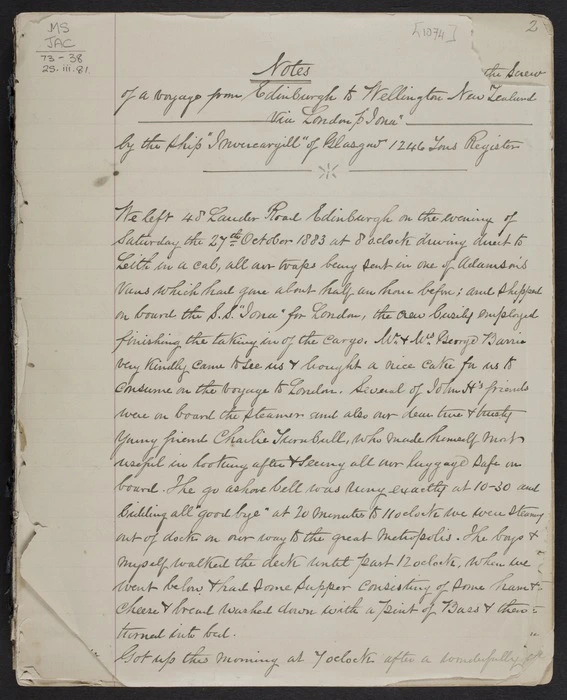 MS
JAC
73-38
25.iii.81.
[1074]
2
Notes
the Screw
of a voyage from Edinburgh to Wellington New Zealand
Via London p "Iona"
by the Ship "Invercargill" of Glasgow 1246 Tons Register
We left 48 Lauder Road Edinburgh on the evening of
Saturday the 27th October 1883 at 8 oclock driving direct to
Leith in a cab, all our traps being sent in one of Adamson's
Vans which had gone about half an hour before; and shipped
on board the S.S. "Iona" for London, the crew busily employed
finishing the taking in of the cargo. Mr & Mrs George Barrie
very kindly came to see us & bought a nice cake for us to
consume on the voyage to London. Several of John H's friends
were on board the steamer and also our dear true & trusty
young friend Charlie Turnbull, who made himself most
useful in looking after & seeing all our luggage safe on
board. The go ashore bell was rung exactly at 10-30 and
bidding all "good bye" at 20 minutes to 11 oclock we were steaming
out of dock on our way to the great Metropolis. The boys &
myself walked the deck until past 12 oclock, when we
went below & had some supper consisting of some ham &
cheese & bread washed down with a pint of Bass & then
turned into bed.
Got up this morning at 7 oclock after a wonderfully